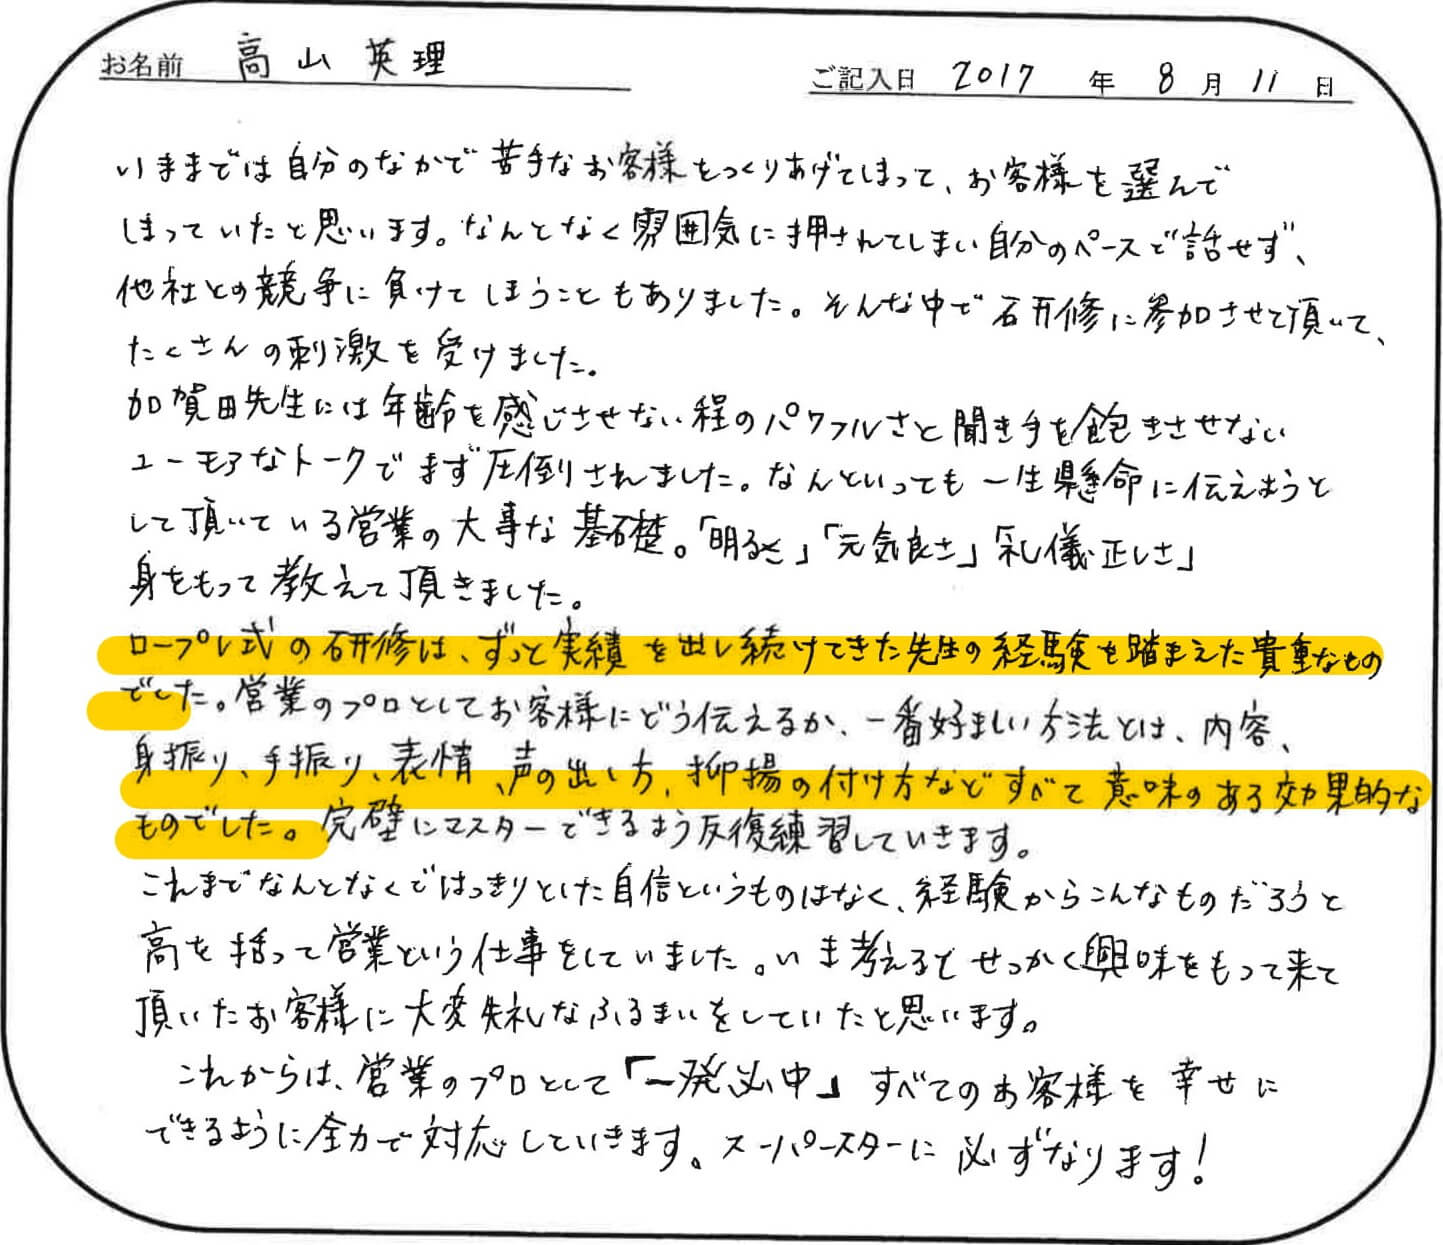 お名前 高山英理 ご記入日 2017年8月11日
いままでは自分のなかで苦手なお客様をつくりあげてしまって、お客様を選んで
しまっていたと思います。なんとなく雰囲気に押されてしまい自分のペースで話せず、
他社との競争に負けてしまうこともありました。そんな中で研修に参加させて頂いて、
たくさんの刺激を受けました。
加賀田先生には年齢を感じさせない程のパワフルさと聞き手を飽きさせない
ユーモアなトークでまず圧倒されました。なんといっても一生懸命に伝えようと
して頂いている営業の大事な基礎。「明るさ」「元気良さ」「礼儀正しさ」
身をもって教えて頂きました。
ロープレ式の研修は、ずっと実績を出し続けてきた先生の経験を踏まえた貴重なもの
でした。営業のプロとしてお客様にどう伝えるか、一番好ましい方法とは、内容、
身振り、手振り、表情、声の出し方、抑揚の付け方などすべて意味のある効果的な
ものでした。完璧にマスターできるよう反復練習していきます。
これまでなんとなくではっきりとした自信というものはなく、経験からこんなものだろうと
高を括って営業という仕事をしていました。いま考えるとせっかく興味をもって来て
頂いたお客様に大変失礼なふるまいをしていたと思います。
これからは、営業のプロとして「一発必中」すべてのお客様を幸せに
できるように全力で対応していきます。スーパースターに必ずなります!